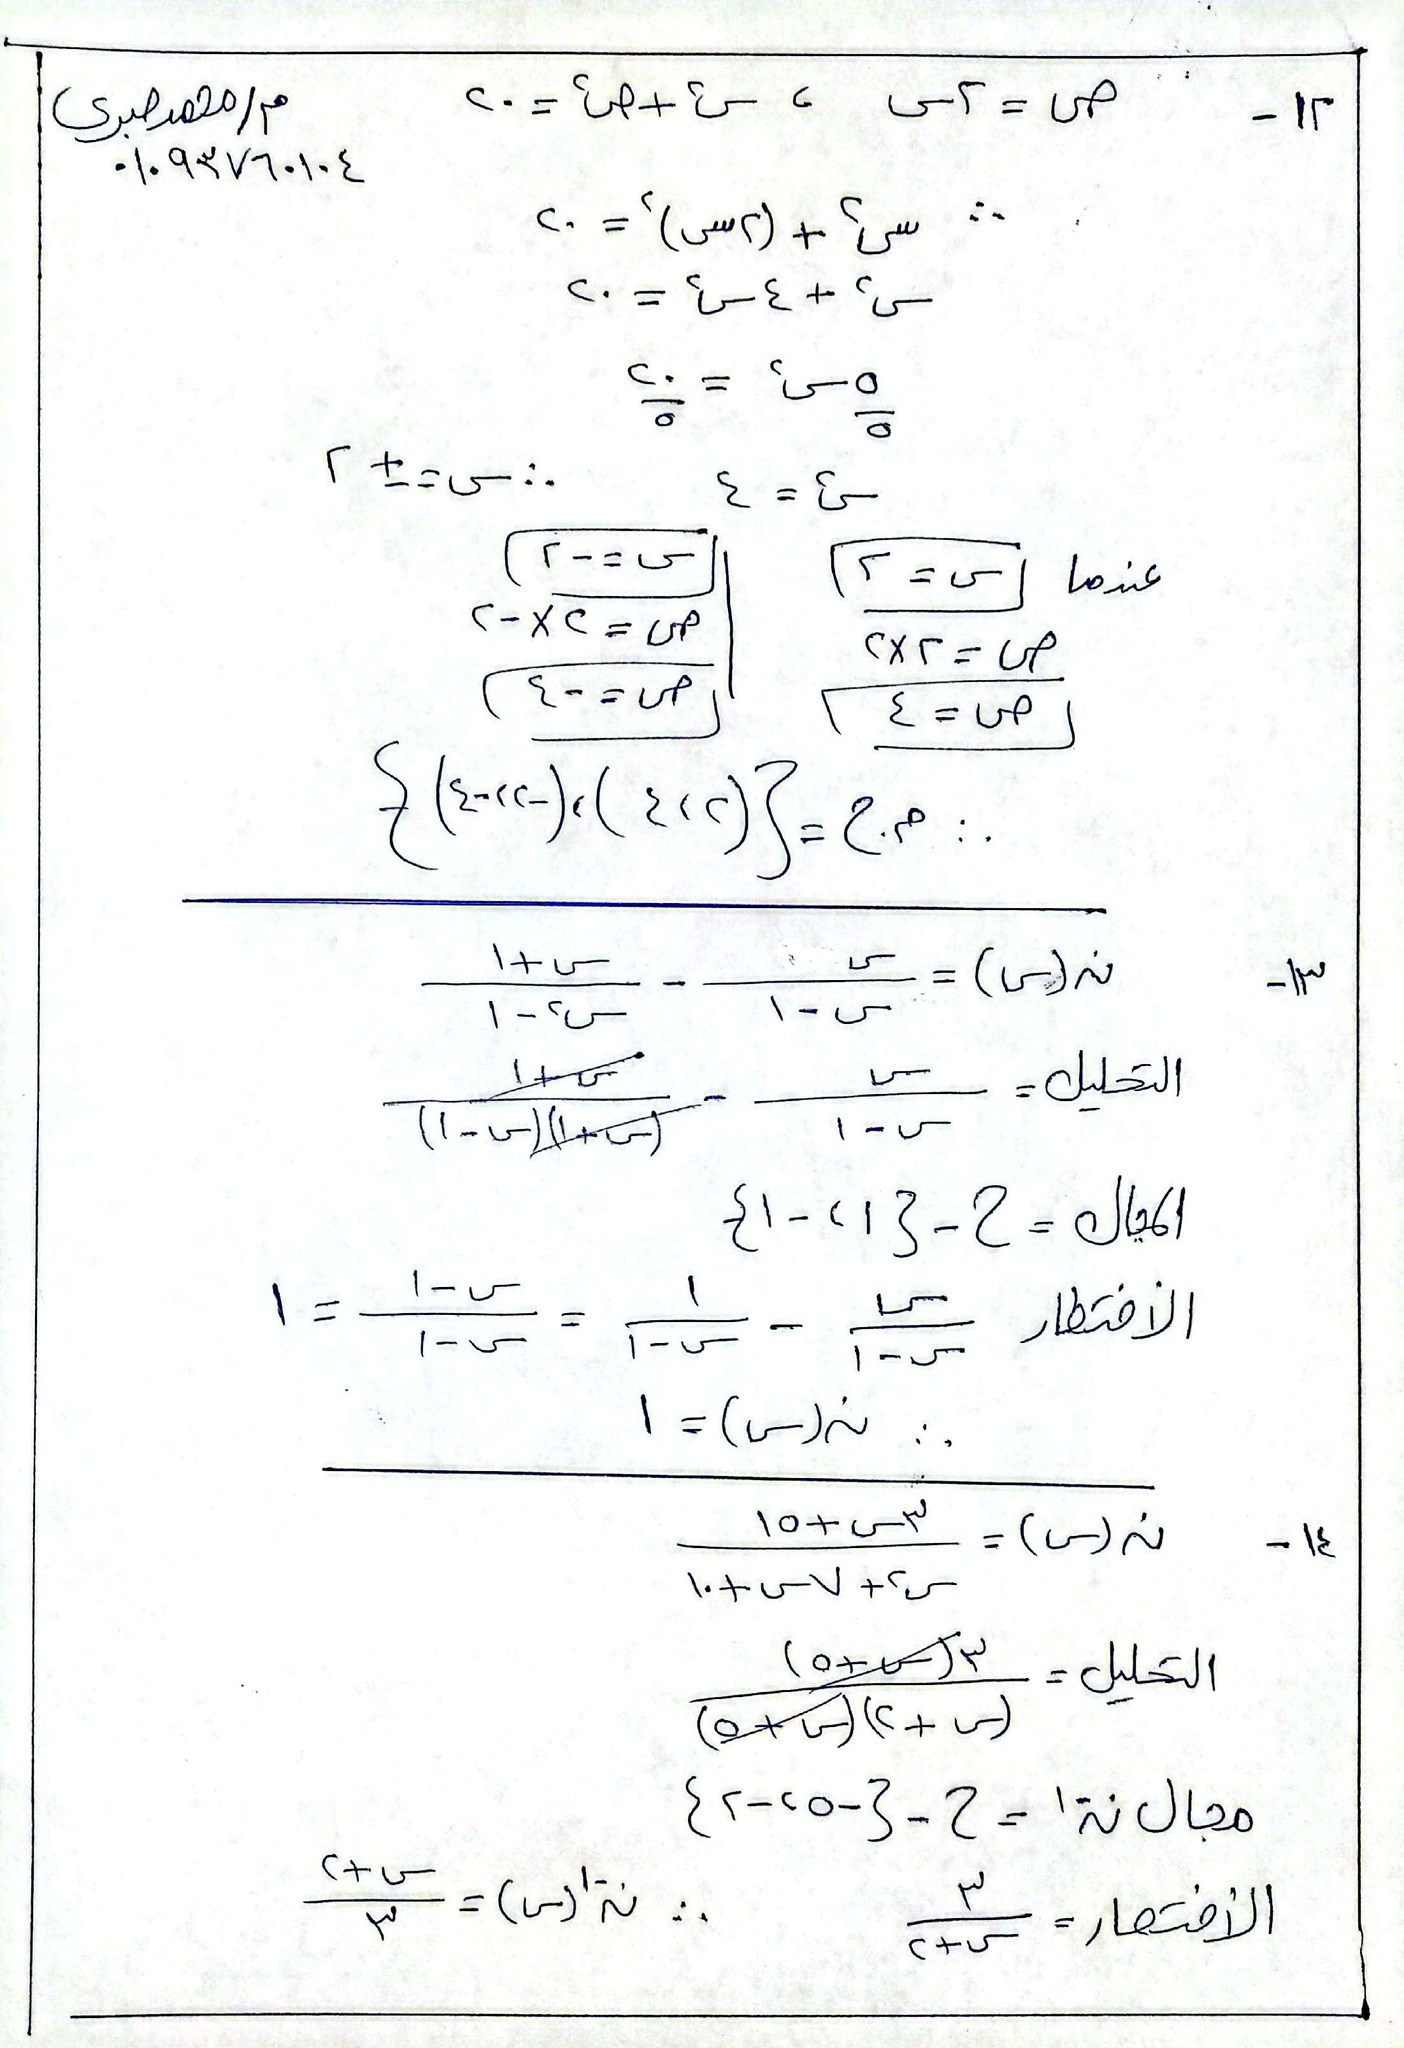 ١٢- ص = ٢س ، س٢ + ص٢ = ٢٠
م/محمد صبري
٠١٠٩٣٧٦٠١٠٤
∴ س٢ + (٢س)٢ = ٢٠
س٢ + ٤س٢ = ٢٠
٥س٢/٥ = ٢٠/٥
س٢ = ٤ ∴ س = ± ٢
عندما س = ٢ | س = -٢
ص = ٢×٢ | ص = ٢×-٢
ص = ٤ | ص = -٤
∴ م.ح = {(٢،٤)،(-٢،-٤)}
١٣- ن(س) = س/(س-١) - (س+١)/(س٢-١)
التحليل = س/(س-١) - (س+١)/((س+١)(س-١))
المجال = ح - {١،-١}
الأختطار س/(س-١) - ١/(س-١) = (س-١)/(س-١) = ١
∴ ن(س) = ١
١٤- ن(س) = (٣س+١٥)/(س٢+٧س+١٠)
التحليل = ٣(س+٥)/((س+٢)(س+٥))
مجال ن-١ = ح - {-٥،-٢}
الأختصار = ٣/(س+٢) ∴ ن-١(س) = (س+٢)/٣